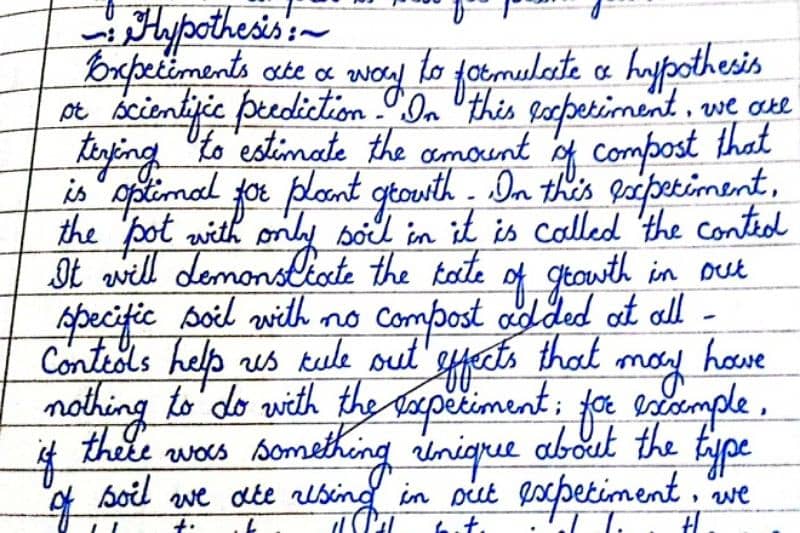 ~: Hypothesis :~
Experiments are a way to formulate a hypothesis
or scientific prediction - In this experiment, we are
trying to estimate the amount of compost that
is optimal for plant growth - In this experiment,
the pot with only soil in it is called the control
It will demonstrate the rate of growth in our
specific soil with no compost added at all -
Controls help us rule out effects that may have
nothing to do with the experiment; for example,
if there was something unique about the type
of soil we are using in our experiment, we